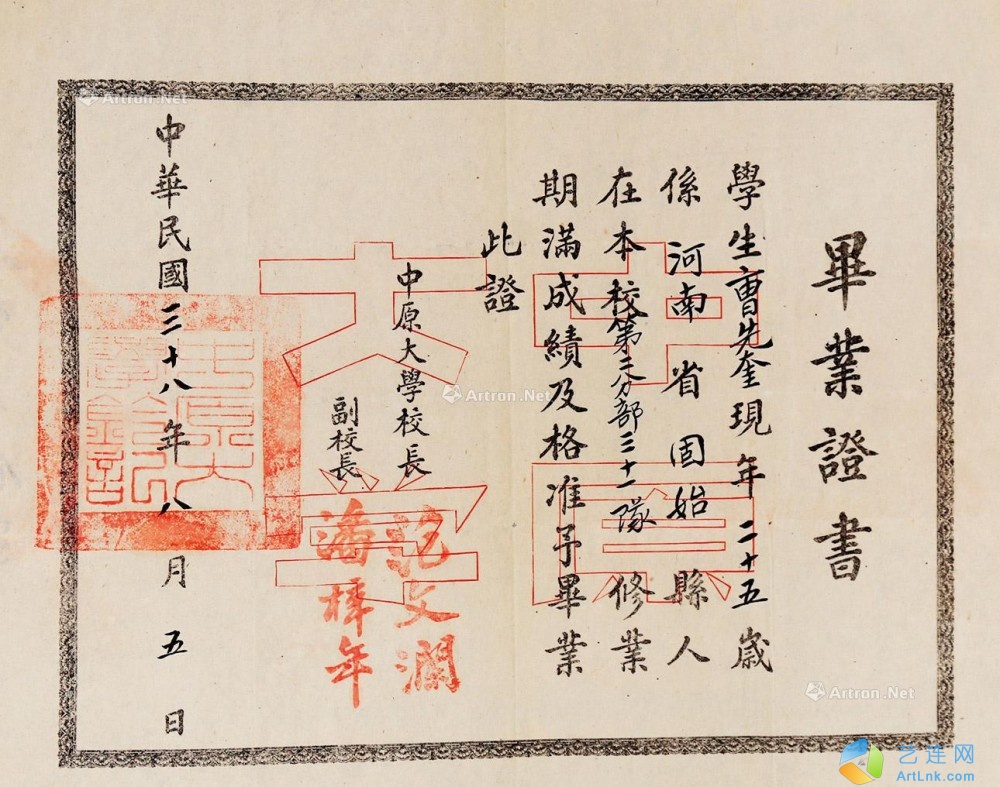 畢業證書
學生曹先奎現年二十五歲
係河南省固始縣人
在本校第二分部三十一隊修業
期滿成績及格准予畢業
此證
中原大學校長 范文瀾
副校長 潘梓年
中華民國三十八年八月五日
中原大學鈐記
Artron.Net
Artron.Net
Artron.Net
艺连网
ArtLnk.com